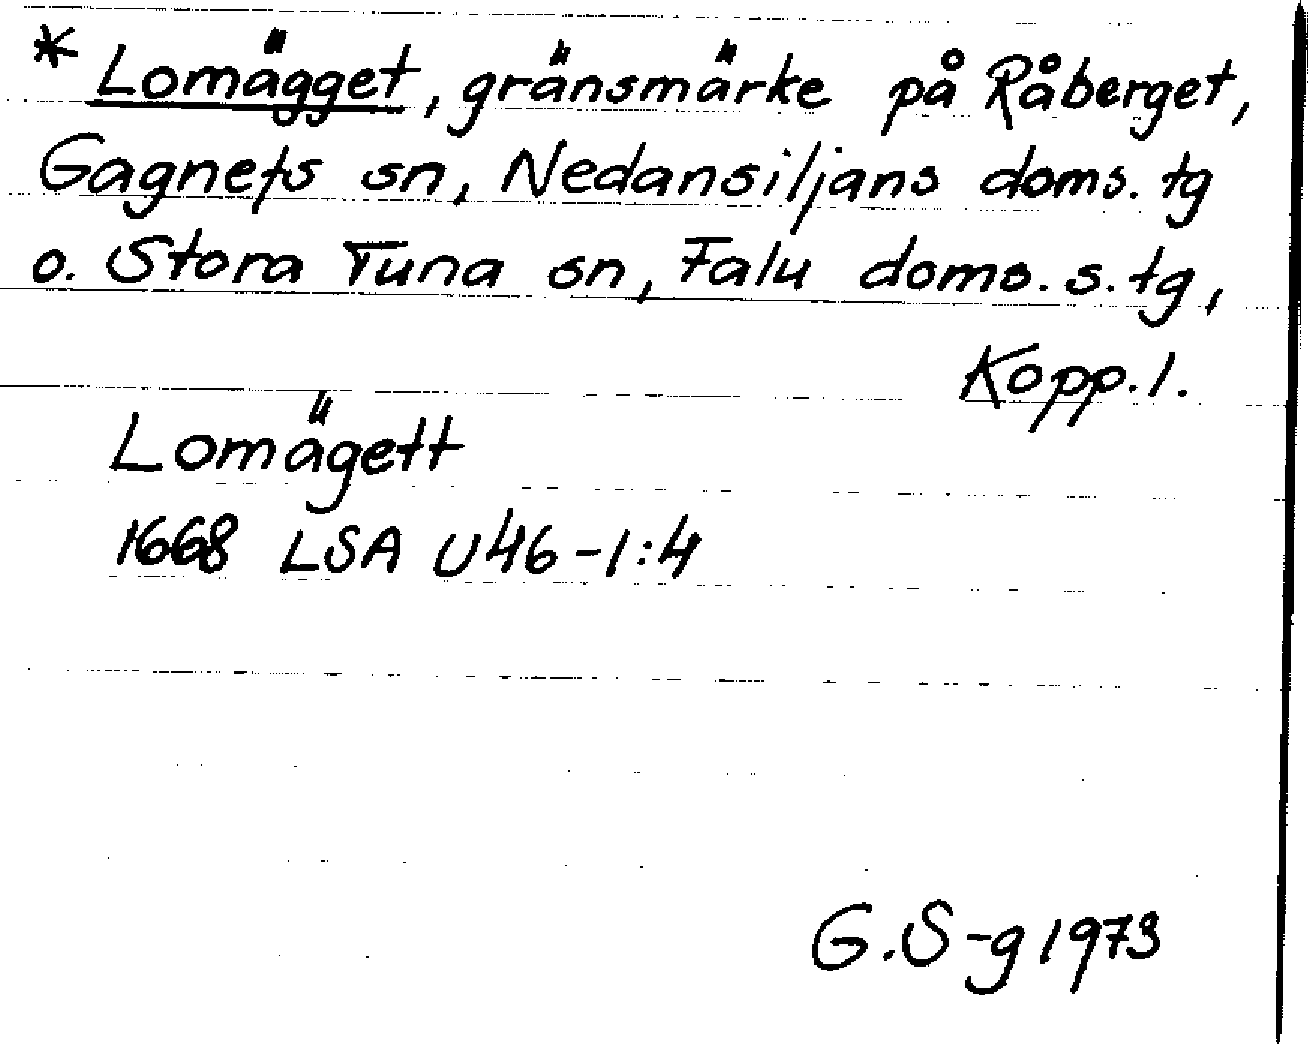 * Lomägget, gränsmärke på Råberget,
Gagnefs sn, Nedansiljans doms. tg
o. Stora Tuna sn, Falu doms. s. tg,
Kopp. l.
Lomägett
1668 LSA U46-1:4
G.S-g 1973